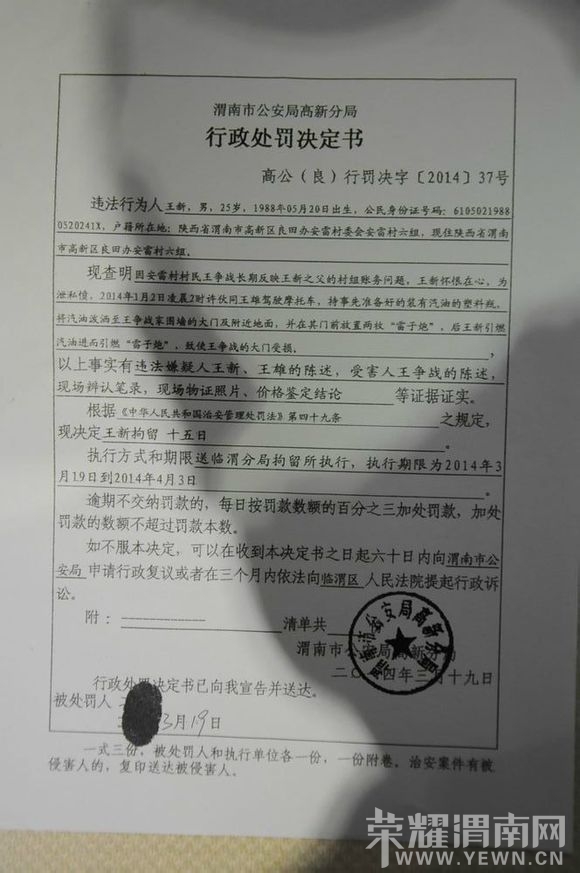 渭南市公安局高新分局
行政处罚决定书
高公（良）行罚决字〔2014〕37号
违法行为人王新，男，25岁，1988年05月20日出生，公民身份证号码：6105021988
0520241X，户籍所在地：陕西省渭南市高新区良田办安雷村委会安雷村六组，现住陕西省渭南
市高新区良田办安雷村六组。
现查明因安雷村村民王争战长期反映王新之父的村组账务问题，王新怀恨在心，为
泄私愤，2014年1月2日凌晨2时许伙同王雄驾驶摩托车，持事先准备好的装有汽油的塑料瓶，
将汽油泼洒至王争战家围墙的大门及附近地面，并在其门前放置两枚“雷子炮”，后王新引燃
汽油进而引燃“雷子炮”，致使王争战的大门受损。
以上事实有违法嫌疑人王新、王雄的陈述，受害人王争战的陈述，
现场辨认笔录，现场物证照片、价格鉴定结论 等证据证实。
根据《中华人民共和国治安管理处罚法》第四十九条 之规定，
现决定王新拘留 十五日
执行方式和期限送临渭分局拘留所执行，执行期限为2014年3
月19日到2014年4月3日
逾期不交纳罚款的，每日按罚款数额的百分之三加处罚款，加处
罚款的数额不超过罚款本数。
如不服本决定，可以在收到本决定书之日起六十日内向渭南市公
安局 申请行政复议或者在三个月内依法向临渭区 人民法院提起行政诉
讼。
附： 清单共
渭南市公安局高新分局
二〇一四年三月十九日
行政处罚决定书已向我宣告并送达。
被处罚人
3月19日
一式三份，被处罚人和执行单位各一份，一份附卷。治安案件有被
侵害人的，复印送达被侵害人。
荣耀渭南网
WWW.YEWN.CN